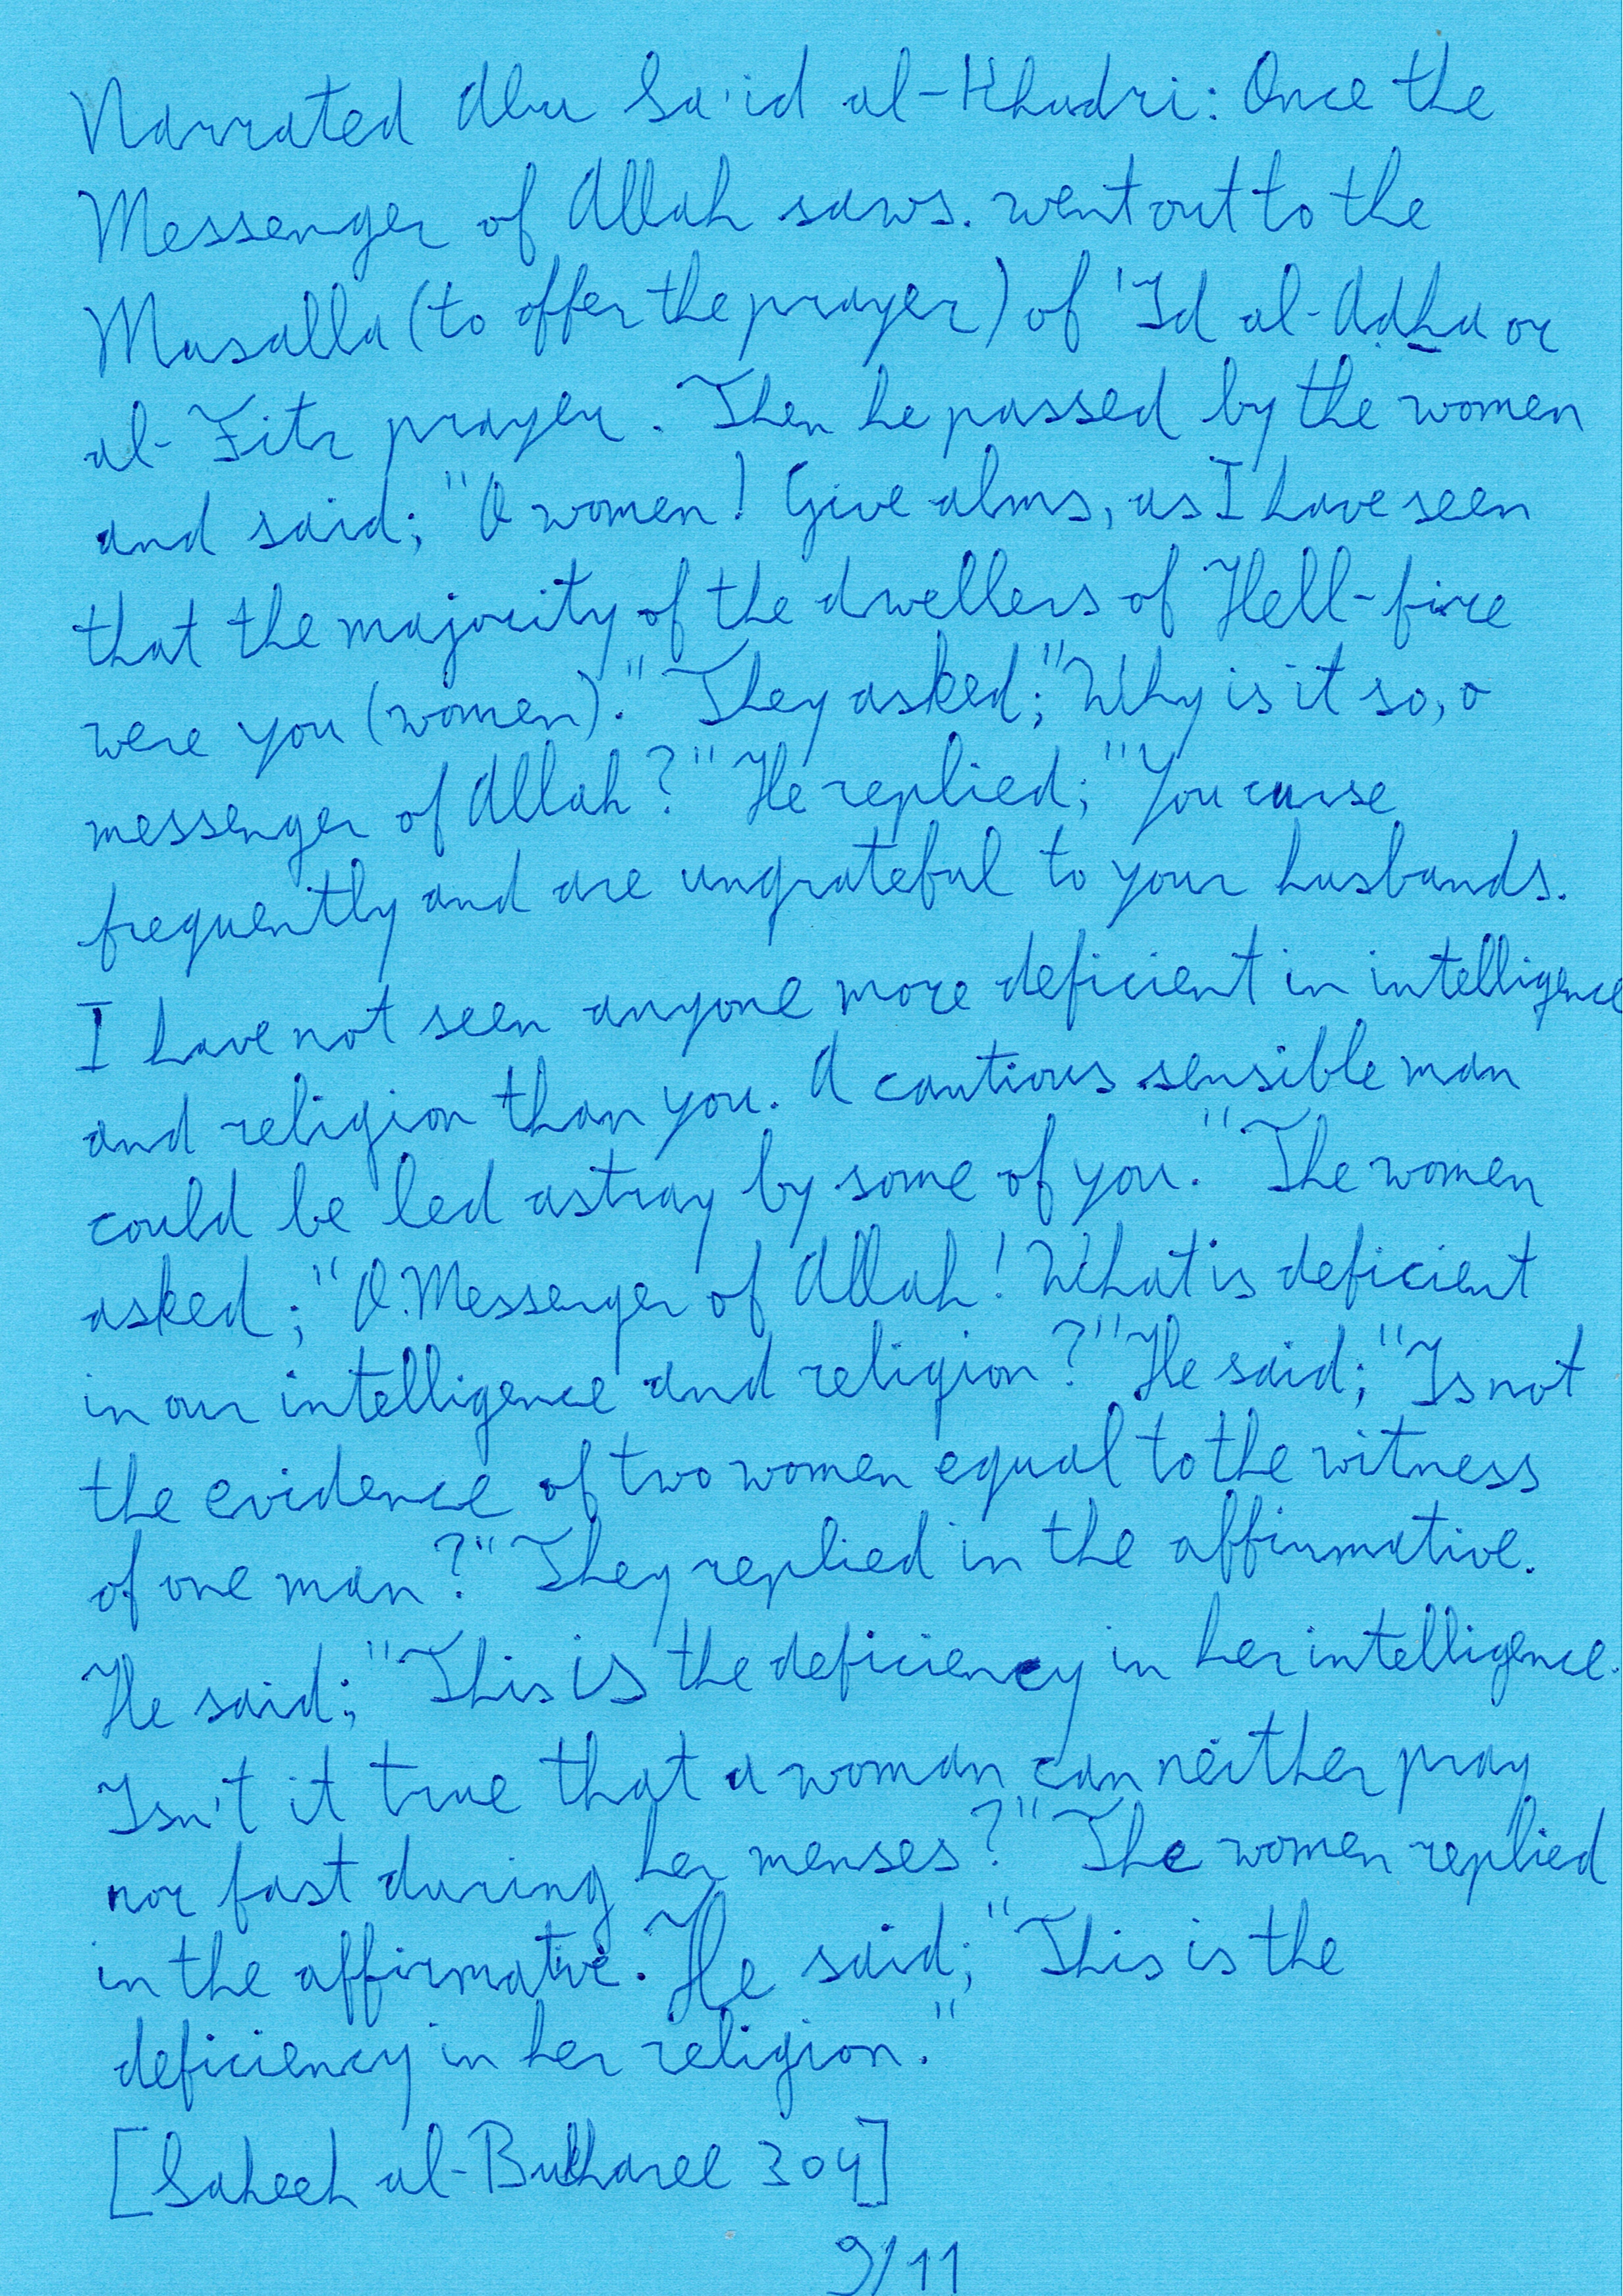 Narrated Abu Sa'id al-Khudri: Once the
Messenger of Allah saws. went out to the
Musalla (to offer the prayer) of 'Id al-Adha or
al-Fitr prayer. Then he passed by the women
and said; "O women! Give alms, as I have seen
that the majority of the dwellers of Hell-fire
were you (women)." They asked; "Why is it so, o
messenger of Allah?" He replied; "You curse
frequently and are ungrateful to your husbands.
I have not seen anyone more deficient in intelligence
and religion than you. A cautious sensible man
could be led astray by some of you." The women
asked; "O Messenger of Allah! What is deficient
in our intelligence and religion?" He said; "Is not
the evidence of two women equal to the witness
of one man?" They replied in the affirmative.
He said; "This is the deficiency in her intelligence.
Isn't it true that a woman can neither pray
nor fast during her menses?" The women replied
in the affirmative. He said; "This is the
deficiency in her religion."
[Saheeh al-Bukharee 304]
9/11